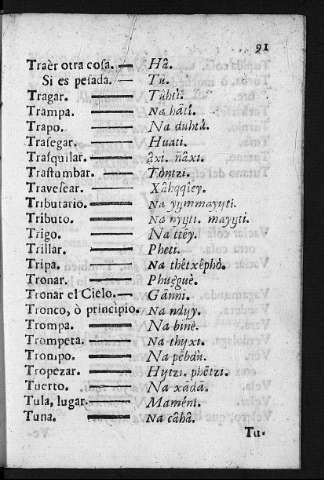 91
Traèr otra cosa. — Hâ.
Si es pesada. — Tû.
Tragar. — Tûhtì.
Trampa. — Na hãtì.
Trapo. — Na duhtû.
Trasegar. — Huati.
Trasquilar. — âxi. nâxi.
Trastumbar. — Tòntzi.
Travesear. — Xâhqqìey.
Tributario. — Na yymmayuti.
Tributo. — Na nyuti. mayuti.
Trigo. — Na ttêy.
Trillar. — Pheti.
Tripa. — Na thêtxêphò.
Tronar. — Phuègué.
Tronar el Cielo. — Gãnni.
Tronco, ò principio. Na nduy.
Trompa. — Na binè.
Trompeta. — Na thyxi.
Trompo. — Na pêhdri.
Tropezar. — Hytzi. phêtzi.
Tuerto. — Na xãdã.
Tula, lugar. — Mamêni.
Tuna. — Na câhâ.
Tu-